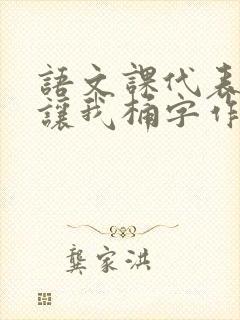 語文課代表
讓我桶字作
龔家洪